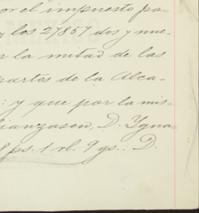 or el impuesto pa-
y los 27857 dos y nue-
r la mitad de las
partes de la Alca-
: y que por la mis-
fianzason, D. Ygna-
8 ps. 1 rl. 9 gs.: D.